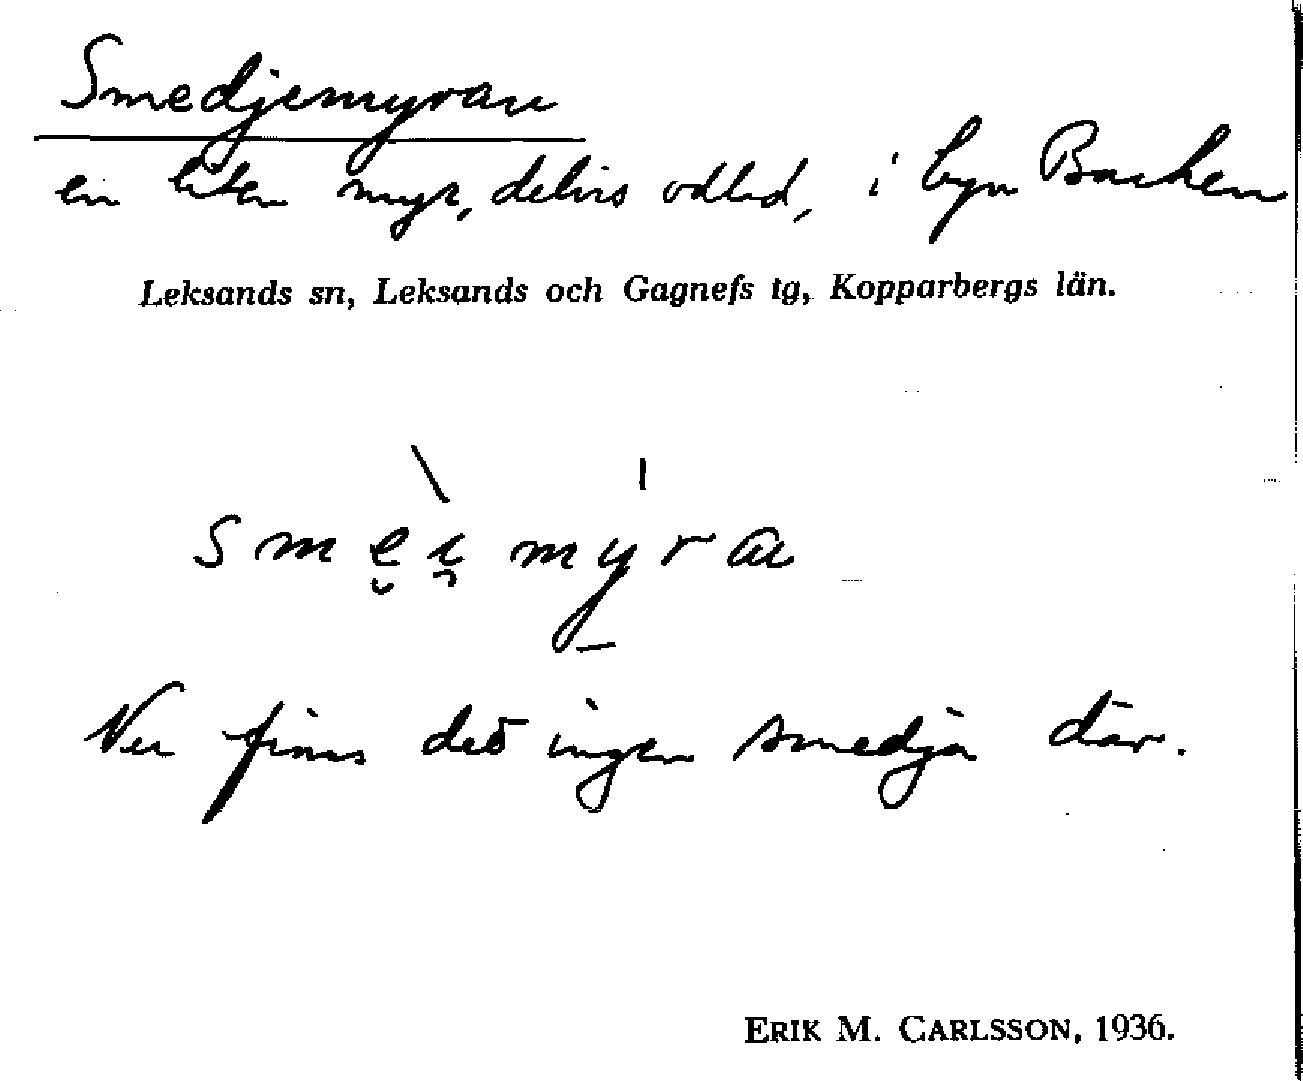 Smedjemyran
en liten myr, delvis odlad, i byn Backen
Leksands sn, Leksands och Gagnefs tg, Kopparbergs län.
smęi̯my̠ra
Nu finns det ingen smedja där.
ERIK M. CARLSSON, 1936.